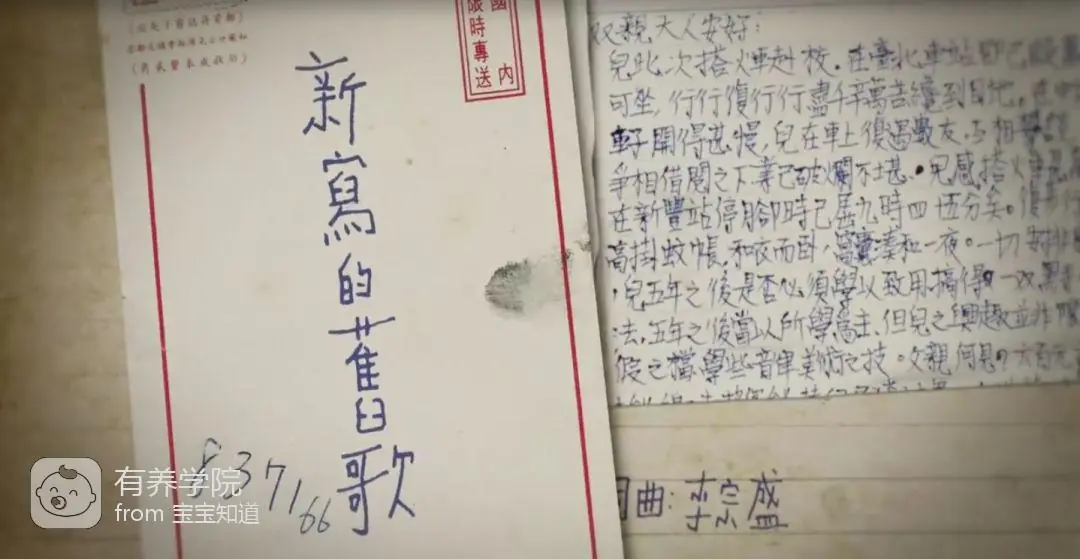 國內
限時專送
新寫的舊歌
53 7/66
雙親大人安好：
兒此次搭火車赴校，在臺北車站即已
可坐，行行復行行盡千辛萬苦纔到目地。在
車子開得甚慢，兒在車上復遇數友，互相
爭相借閱之下業已破爛不堪。兒感搭火車
在新豐站停腳時已屆九時四伍分矣。復
高掛蚊帳，和衣而臥，窩囊湊和一夜。一切安排
，兒五年之後是否必須學以致用搞得一
法，五年之後當以所學為主，但兒之興趣並非
假之檔學些音律美術之技。父親何見？六百元
詞曲：李宗盛
有养学院
from 宝宝知道